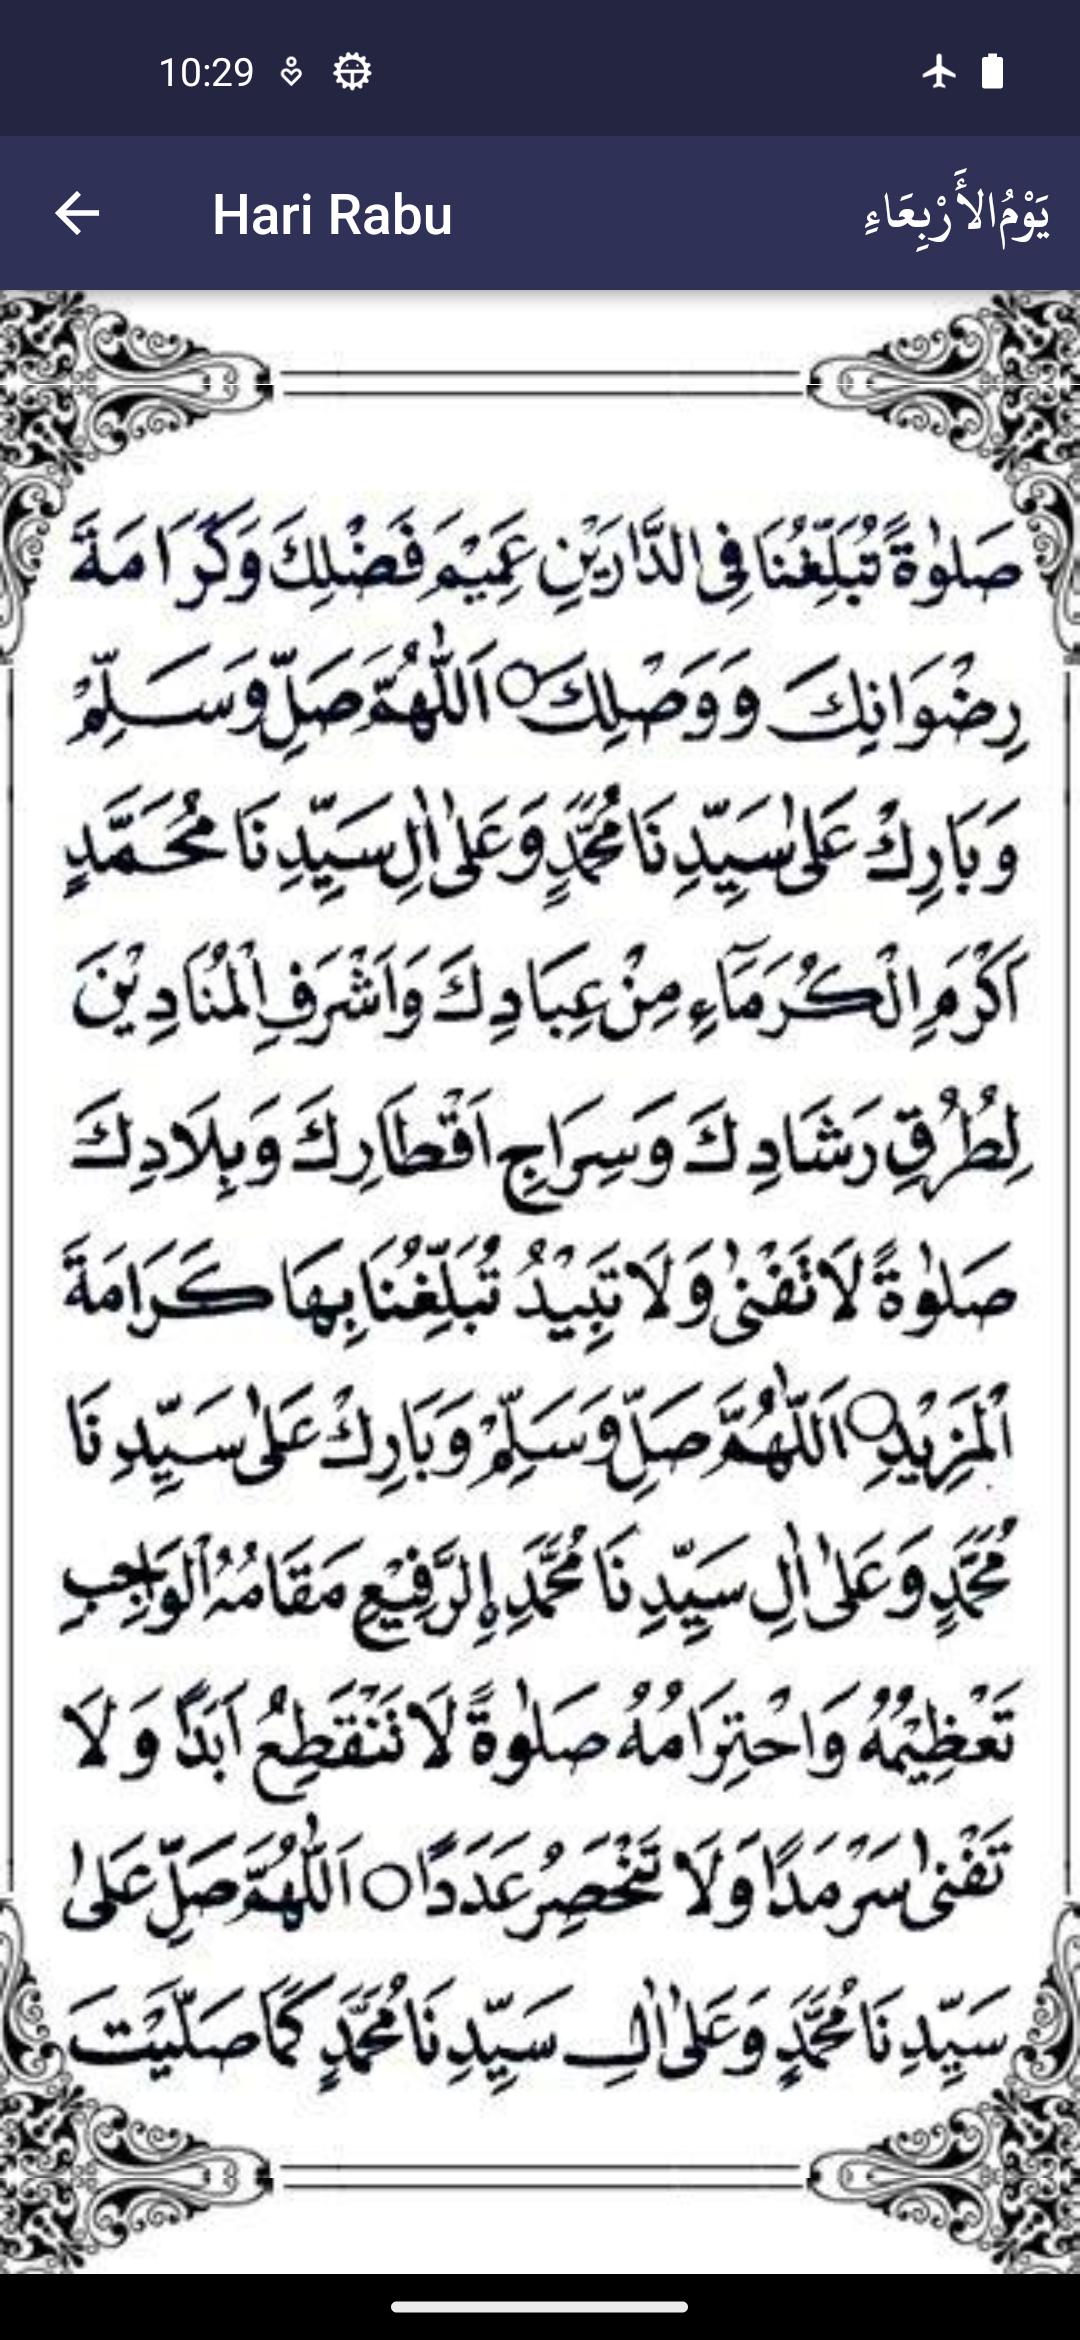 10:29
Hari Rabu
يَوْمُ الأَرْبِعَاءِ
صَلٰوةً تُبَلِّغُنَا فِى الدَّارَيْنِ عَمِيْمَ فَضْلِكَ وَكَرَامَةَ
رِضْوَانِكَ وَوَصْلِكَ ○ اَللّٰهُمَّ صَلِّ وَسَلِّمْ
وَبَارِكْ عَلٰى سَيِّدِنَا مُحَمَّدٍ وَعَلٰى اٰلِ سَيِّدِنَا مُحَمَّدٍ
اَكْرَمِ الْكُرَمَآءِ مِنْ عِبَادِكَ وَاَشْرَفِ الْمُنَادِيْنَ
لِطُرُقِ رَشَادِكَ وَسِرَاجِ اَقْطَارِكَ وَبِلَادِكَ
صَلٰوةً لَا تَفْنٰى وَلَا تَبِيْدُ تُبَلِّغُنَا بِهَا كَرَامَةَ
الْمَزِيْدِ ○ اَللّٰهُمَّ صَلِّ وَسَلِّمْ وَبَارِكْ عَلٰى سَيِّدِنَا
مُحَمَّدٍ وَعَلٰى اٰلِ سَيِّدِنَا مُحَمَّدِ إِلرَّفِيْعِ مَقَامُهُ الْوَاجِبِ
تَعْظِيْمُهُ وَاحْتِرَامُهُ صَلٰوةً لَا تَنْقَطِعُ اَبَدًا وَلَا
تَفْنٰى سَرْمَدًا وَلَا تَنْحَصِرُ عَدَدًا ○ اَللّٰهُمَّ صَلِّ عَلٰى
سَيِّدِنَا مُحَمَّدٍ وَعَلٰى اٰلِ سَيِّدِنَا مُحَمَّدٍ كَمَا صَلَّيْتَ